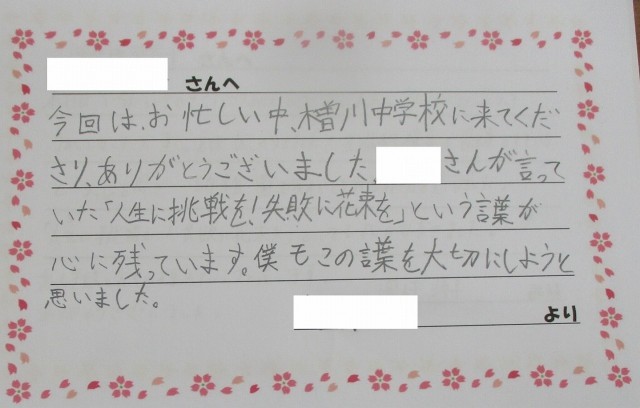 さんへ
今回は、お忙しい中、楢川中学校に来てくだ
さり、ありがとうございました。さんが言って
いた「人生に挑戦を！失敗に花束を」という言葉が
心に残っています。僕もこの言葉を大切にしようと
思いました。
より